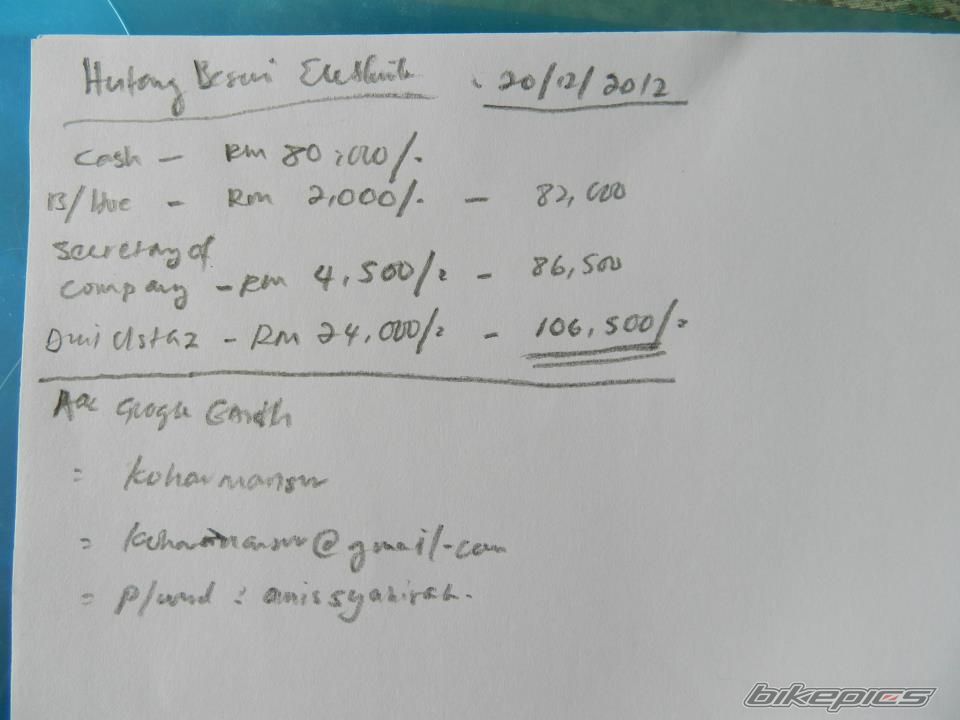 Hutang Besri Elektrik 20/12/2012
Cash - RM 80,000/-
B/Hoe - RM 2,000/- - 82,000
Secretary of
Company - RM 4,500/- - 86,500
Duit Ustaz - RM 24,000/- - 106,500/-
Acc Google Earth
= koharmansur
= koharmansur@gmail.com
= P/word : anissyahirah.
bikepics